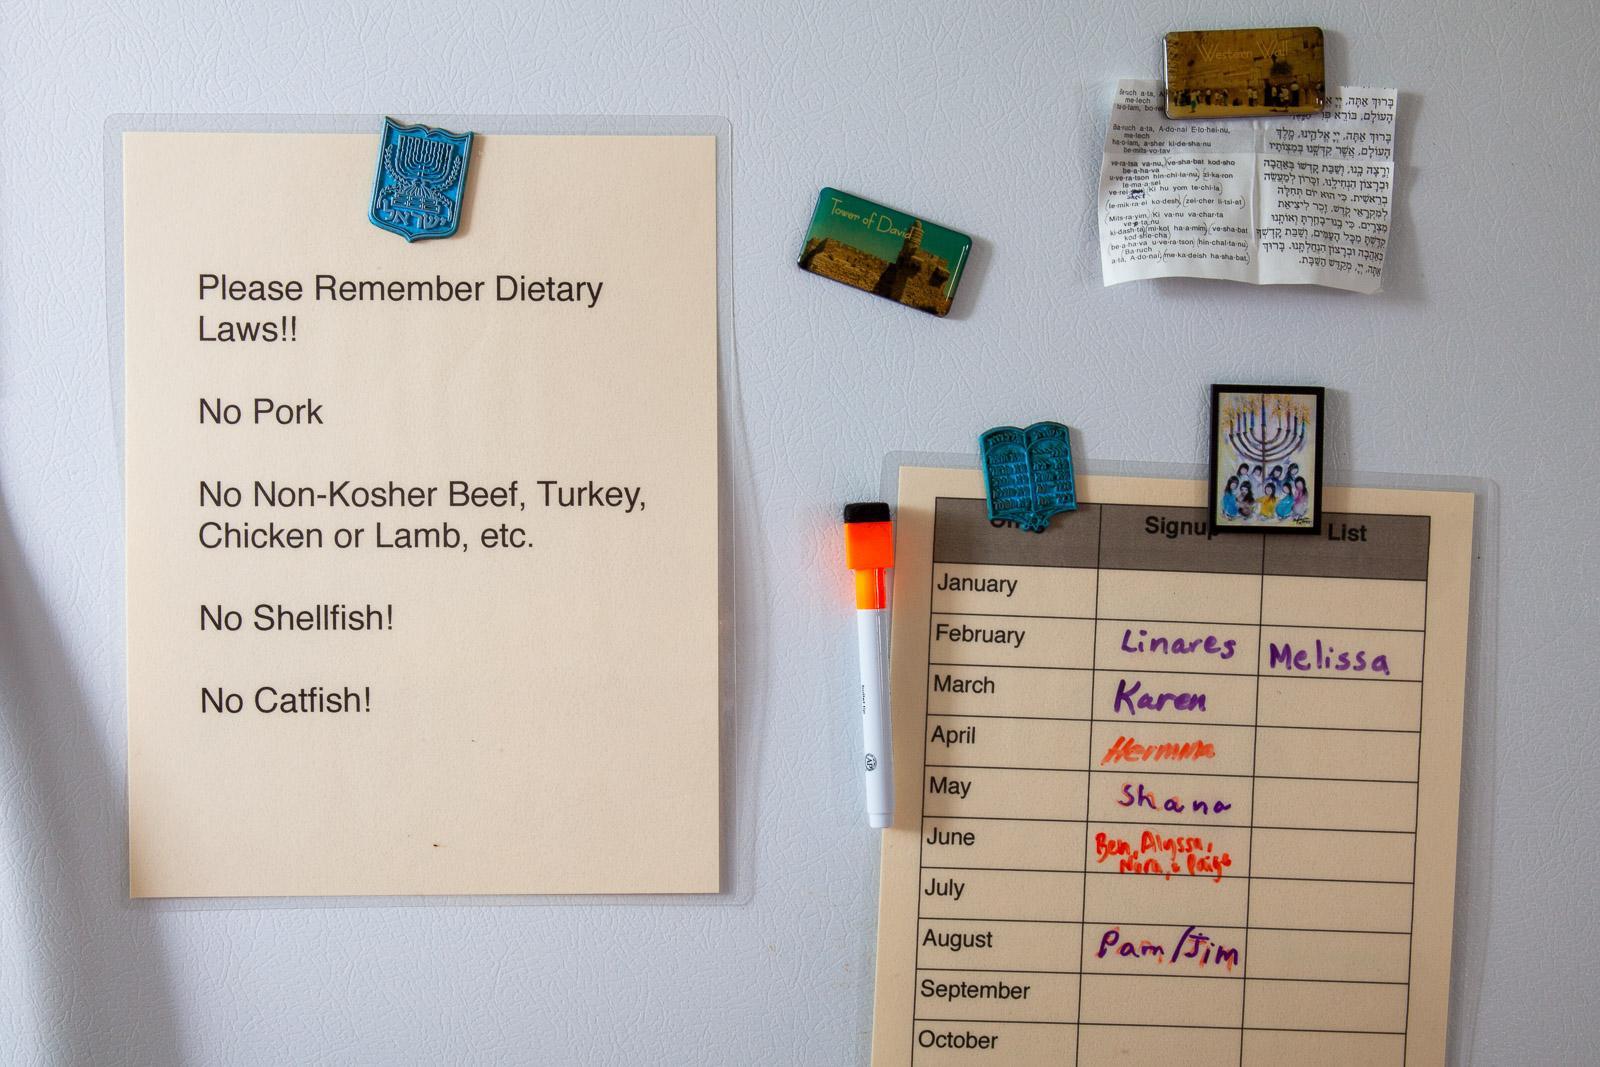 ישראל
Please Remember Dietary
Laws!!
No Pork
No Non-Kosher Beef, Turkey,
Chicken or Lamb, etc.
No Shellfish!
No Catfish!
Tower of David
Western Wall
me-lech
Ba-ruch a-ta, A-do-nai E-lo-hei-nu,
me-lech
ha-o-lam, a-sher ki-de-sha-nu
be-mits-vo-tav
ve-ra-tsa va-nu, (ve-sha-bat kod-sho
be-a-ha-va
u-ve-ra-tson hin-chi-la-nu,) zi-ka-ron
le-ma-a-sei
ve-rei Ki hu yom te-chi-la
le-mik-ra-ei ko-desh, (zei-cher li-tsi-at)
Mits-ra-yim. Ki va-nu va-char-ta
ve-o-ta-nu
ki-dash-ta (mi-kol ha-a-mim) (ve-sha-bat
kod-she-cha)
be-a-ha-va u-ve-ra-tson (hin-chal-ta-nu)
Ba-ruch
a-ta, A-do-nai, (me-ka-deish ha-sha-bat.)
בָּרוּךְ אַתָּה, יְיָ
הָעוֹלָם, בּוֹרֵא
בָּרוּךְ אַתָּה, יְיָ אֱלֹהֵינוּ, מֶלֶךְ
הָעוֹלָם, אֲשֶׁר קִדְּשָׁנוּ בְּמִצְוֹתָיו
וְרָצָה בָנוּ, וְשַׁבַּת קָדְשׁוֹ בְּאַהֲבָה
וּבְרָצוֹן הִנְחִילָנוּ, זִכָּרוֹן לְמַעֲשֵׂה
בְרֵאשִׁית. כִּי הוּא יוֹם תְּחִלָּה
לְמִקְרָאֵי קֹדֶשׁ, זֵכֶר לִיצִיאַת
מִצְרָיִם. כִּי־בָנוּ בָחַרְתָּ וְאוֹתָנוּ
קִדַּשְׁתָּ מִכָּל הָעַמִּים, וְשַׁבַּת קָדְשְׁךָ
בְּאַהֲבָה וּבְרָצוֹן הִנְחַלְתָּנוּ. בָּרוּךְ
אַתָּה, יְיָ, מְקַדֵּשׁ הַשַּׁבָּת.
Signup List
January
February Linares Melissa
March Karen
April
May Shana
June Ben, Alyssa,
Nora, & Paige
July
August Pam/Jim
September
October